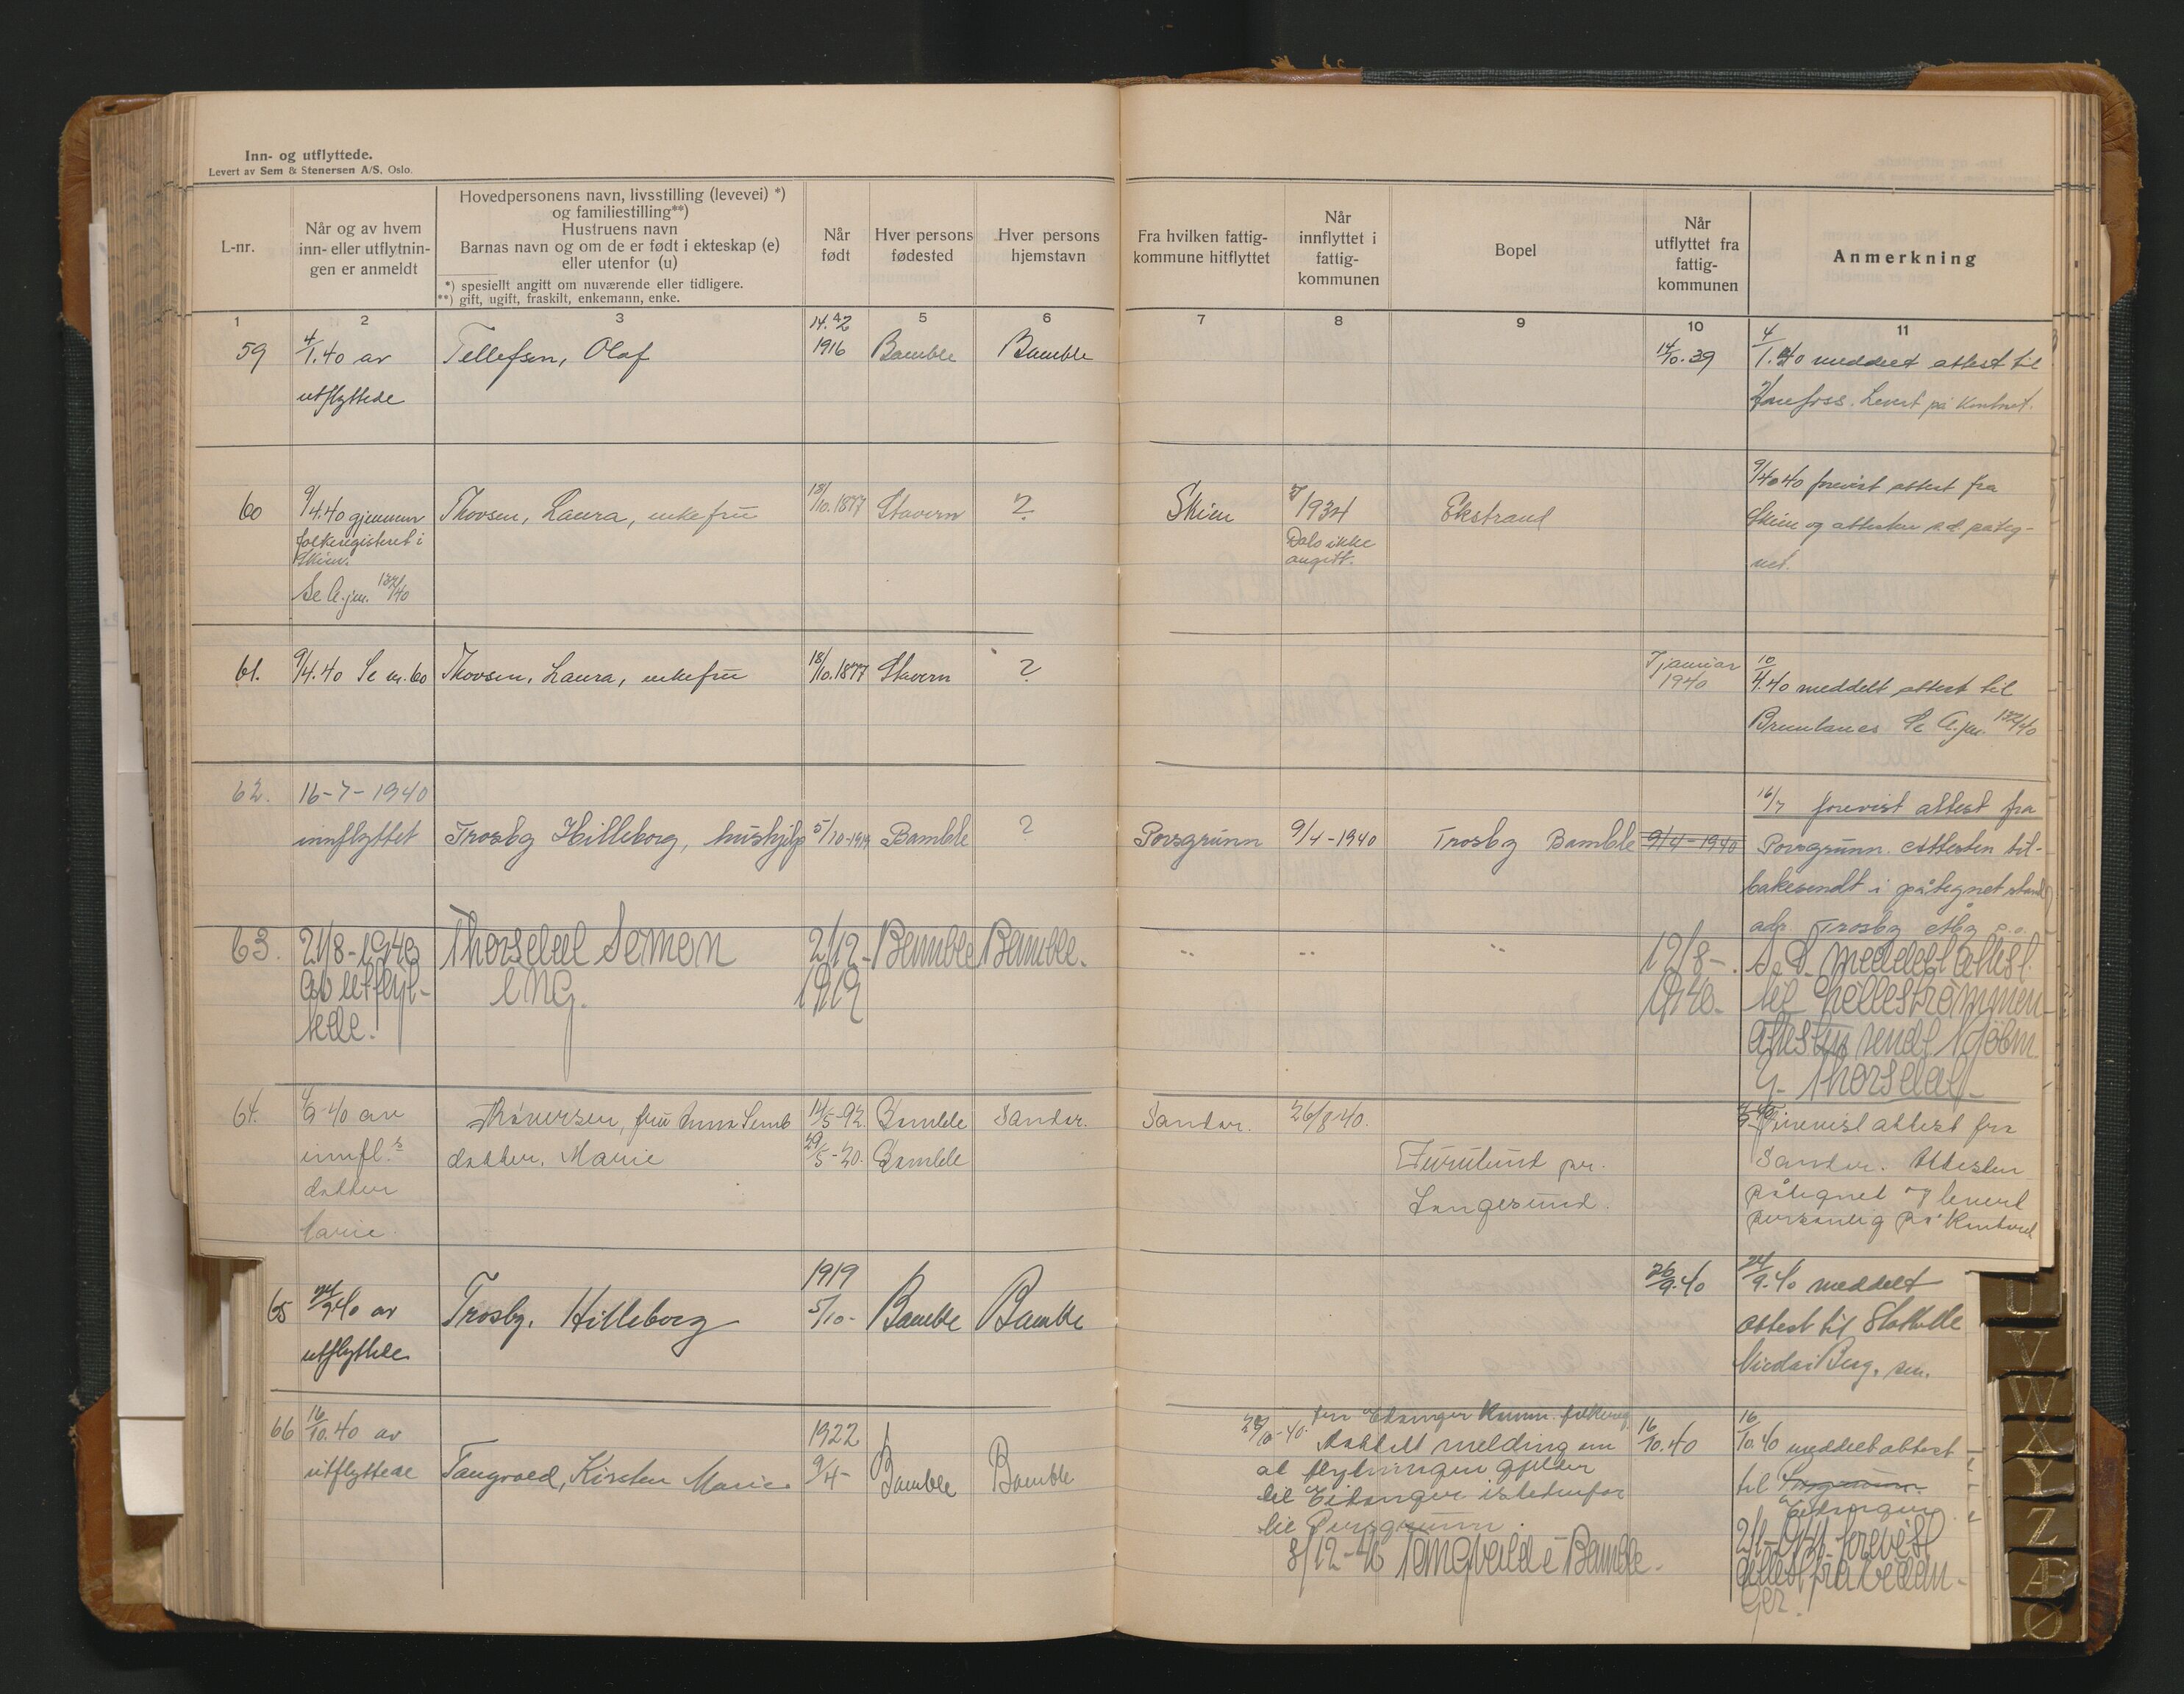 Inn- og utflyttede.
Levert av Sem & Stenersen A/S, Oslo.
L-nr.
Når og av hvem
inn- eller utflytnin-
gen er anmeldt
Hovedpersonens navn, livsstilling (levevei) *)
og familiestilling**)
Hustruens navn
Barnas navn og om de er født i ekteskap (e)
eller utenfor (u)
*) spesiellt angitt om nuværende eller tidligere.
**) gift, ugift, fraskilt, enkemann, enke.
Når
født
Hver persons
fødested
Hver persons
hjemstavn
Fra hvilken fattig-
kommune hitflyttet
Når
innflyttet i
fattig-
kommunen
Bopel
Når
utflyttet fra
fattig-
kommunen
Anmerkning
1 2 3 5 6 7 8 9 10 11
59 4/1.40 av Tellefsen, Olaf 1916 Bamble Bamble 14/10.39 4/1.40 meddelt attest til
utflyttede Levert på kontoret.
60 9/4.40 gjennem Thovsen, Laura, enkefru 18/10.1877 Stavern ? Skien 1934 Ekstrand forevist attest fra
folkeregisteret i Dato ikke Skien og attesten s.d. påteg-
Skien. angitt. net.
Se A.jnr. 132/40
61. 9/4.40 Se nr. 60 Thovsen, Laura, enkefru 18/10.1877 Stavern ? januar 10/4.40 meddelt attest til
1940 Brunlanes Se A.jnr. 132/40
62. 16-7-1940 16/7 forevist attest fra
innflyttet Trosby Hilleborg, hushjelp 5/10-1919 Bamble ? Porsgrunn 9/4-1940 Trosby Bamble 9/4-1940 Porsgrunn. Attesten til-
bakesendt i påtegnet stand
adr. Trosby Åby p.o.
63. 21/8-1940 Thorsdal Simon 2/12- Bamble Bamble. " " " 12/8-. S.d. meddelt attest
av utflyt- ung. 1919 1940. til
tede. attesten sendt
Thorsdal
64. 4/9 40 av fru Anna Semb 14/5-92. Bamble Sandar. Sandar. 26/8 40. forevist attest fra
innfl.s datter, Marie 29/5-20. Bamble Furulund pr. Sandar. Attesten
datter Langesund. påtegnet og levert
Marie. personlig på kontoret
65 24/9.40 av Trosby, Hilleborg 1919 5/10- Bamble Bamble 26/9.40 24/9.40 meddelt
utflyttede attest til
66 16/10.40 av 1922 fra Eidanger komm. folkereg. 16/10.40 16/10.40 meddelt attest
utflyttede Tangvald, Kirsten Marie 9/4- Bamble Bamble mottatt melding om til Porsgrunn
at flytningen gjelder Eidanger
til Eidanger istedenfor
til Porsgrunn.
8/12-46 Tangvald i Bamble. forevist
attest fra Eidan-
ger.
U
V
W
X
Y
Z
Æ
Ø